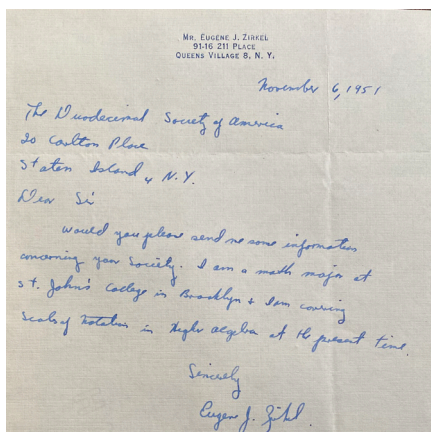 MR. EUGENE J. ZIRKEL
91-16 211 PLACE
QUEENS VILLAGE 8, N. Y.
November 6, 1951
The Duodecimal Society of America
20 Carlton Place
Staten Island 4, N.Y.
Dear Sir
Would you please send me some information
concerning your Society. I am a math major at
St. John's College in Brooklyn & I am covering
Scales of Notation in Higher Algebra at the present time.
Sincerely
Eugene J. Zirkel.